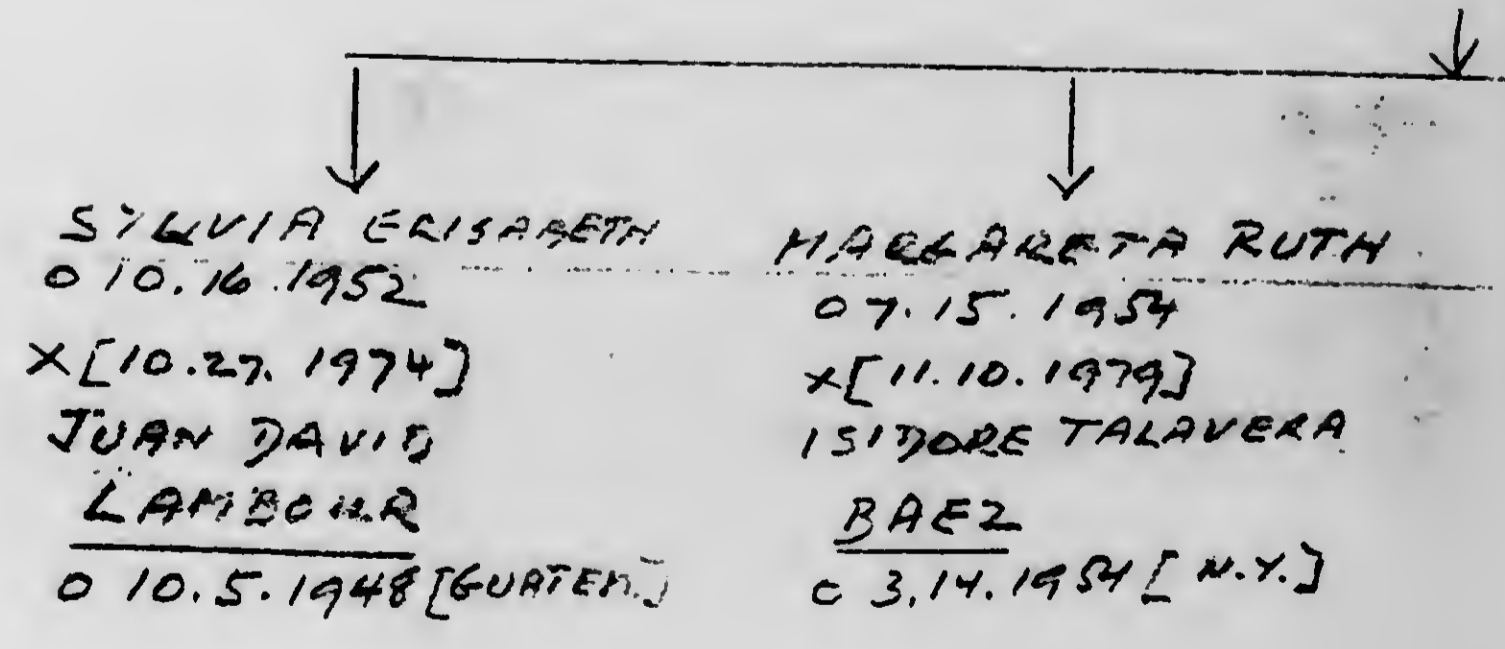 SYLVIA ELISABETH
o 10.16.1952
x[10.27.1974]
JUAN DAVID
LAMBOUR
o 10.5.1948 [GUATEM.]
MARGARETA RUTH
o 7.15.1954
x[11.10.1979]
ISIDORE TALAVERA
BAEZ
o 3.14.1954 [N.Y.]